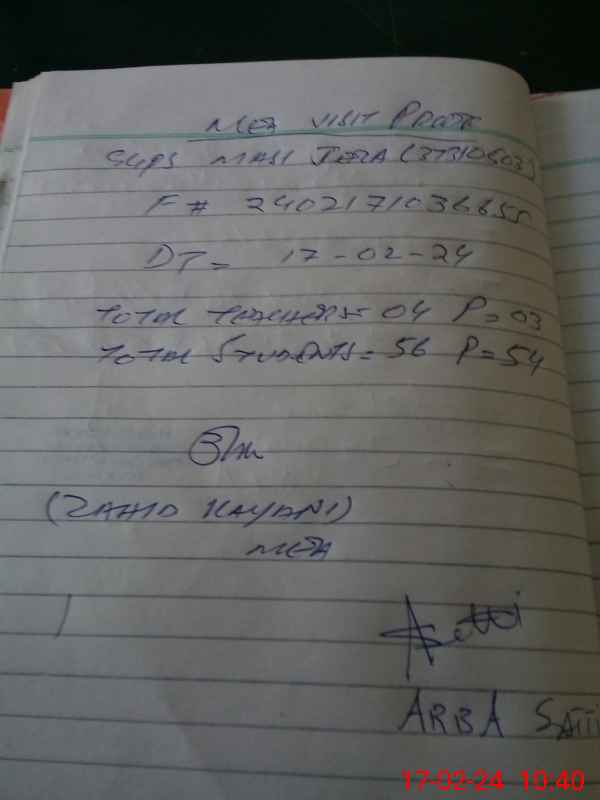 MEA VISIT PROOF
GGPS MASI JERA (37310603)
F# 2402171036655
DT = 17-02-24
TOTAL TEACHERS = 04 P = 03
TOTAL STUDENTS = 56 P = 54
(ZAHID KAYANI)
MEA
ARBA Satti
17-02-24 10:40